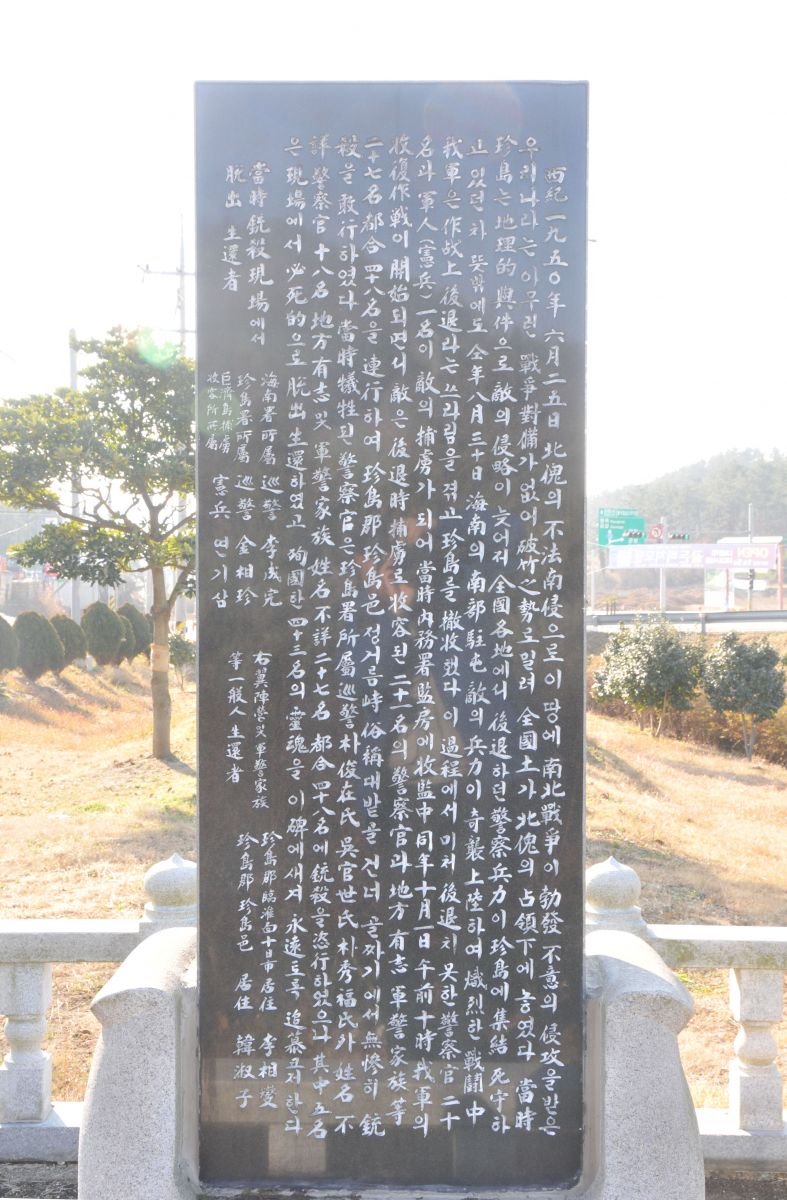 西紀一九五○年 六月二五日 北傀의 不法南侵으로 이 땅에 南北戰爭이 勃發 不意의 侵攻을 받은
우리나라는 아무런 戰爭對備가 없어 破竹之勢로 밀려 全國土가 北傀의 占領下에 놓였다 當時
珍島는 地理的 與件으로 敵의 侵略이 늦어저 全國各地에서 後退하던 警察兵力이 珍島에 集結 死守하
고 있던차 뜻밖에도 仝年八月三十日 海南의 南部駐屯 敵의 兵力이 奇襲上陸하여 熾烈한 戰鬪中
我軍은 作战上 後退라는 쓰라림을 겪고 珍島를 撤收했다 이 過程에서 미처 後退치 못한 警察官 二十
名과 軍人(憲兵) 一名이 敵의 捕虜가 되어 當時 內務署監房에 收監中 同年十月一日 午前十時 我軍의
收復作戰이 開始되면서 敵은 後退時 捕虜로 收容된 二十一名의 警察官과 地方有志 軍警家族等
二十七名 都合 四十八名을 連行하여 珍島郡 珍島邑 성거름峙 俗稱 대밭골 건너 골짜기에서 無慘히 銃
殺을 敢行하였다 當時 犧牲된 警察官은 珍島署所屬 巡警 朴俊在氏 吳官世氏 朴秀福氏外 姓名 不
詳 警察官 十八名 地方有志 및 軍警家族 姓名不詳 二十七名 都合 四十八名에 銃殺을 恣行하였으나 其中 五名
은 現場에서 必死的으로 脫出 生還하였고 殉國한 四十三名의 靈魂을 이 碑에 새겨 永遠도록 追慕코저 한다
當時 銃殺現場에서
脫出 生還者
海南署所屬 巡警 李成完
珍島署所屬 巡警 金相珍
巨濟島捕虜
收容所所屬 憲兵 연기삼
右翼陣營 및 軍警家族
等 一般人 生還者
珍島郡 臨淮面 十日市 居住 李相燮
珍島郡 珍島邑 居住 韓淑子
OPEN